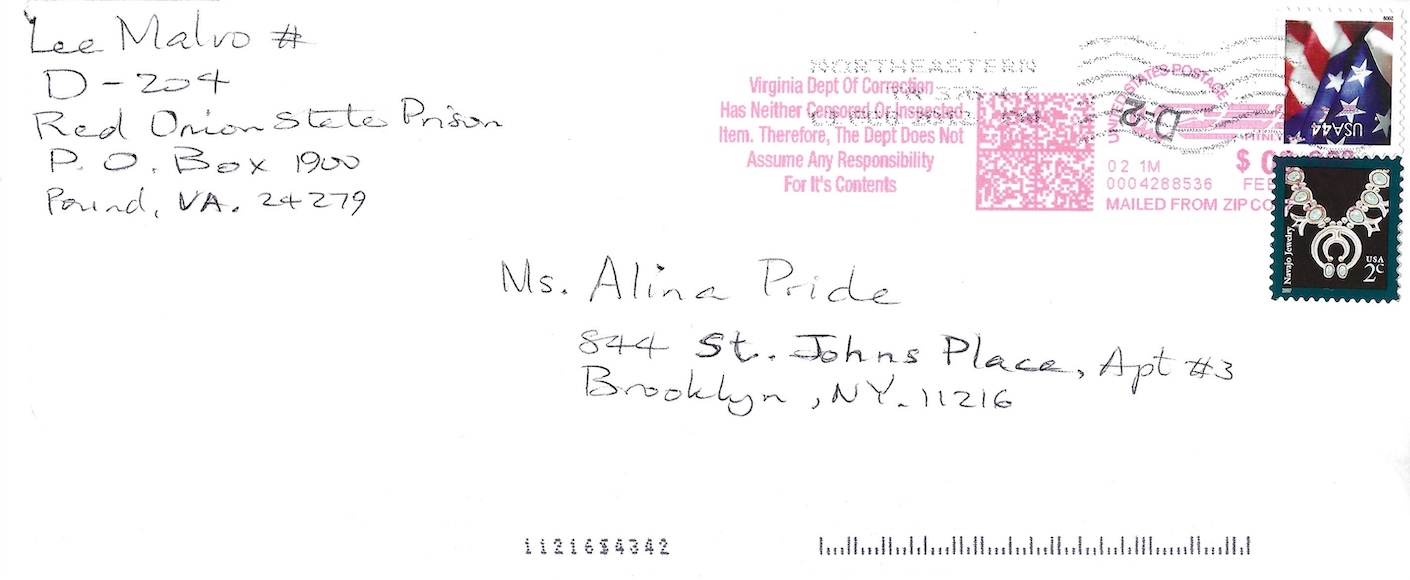 Lee Malvo #
D-204
Red Onion State Prison
P.O. Box 1900
Pound, VA. 24279
NORTHEASTERN
Virginia Dept Of Correction
Has Neither Censored Or Inspected
Item. Therefore, The Dept Does Not
Assume Any Responsibility
For It's Contents
UNITED STATES POSTAGE
D-2
02 1M
0004288536 FEB
MAILED FROM ZIP CO
2009
USA44
Navajo Jewelry
USA
2c
2007
Ms. Alina Pride
844 St. Johns Place, Apt #3
Brooklyn, NY. 11216